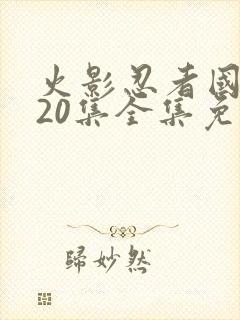 火影忍者國
20集全集免
歸妙然